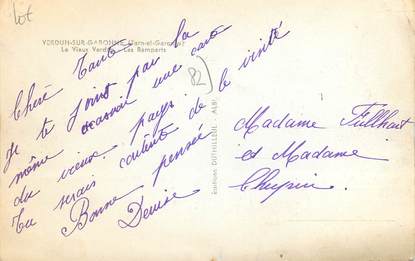 lot
VERDUN-SUR-GARONNE (Tarn-et-Garonne)
Le Vieux Verdun - Les Remparts
Chère Tante
Je te joint par la
même occasion une carte
du vieux pays.
Tu serais contente de le visité
Bonne pensée
Denise
82
EDITIONS DUTHILLEUL, ALBI
Madame Füllhart
et Madame
Chupin.